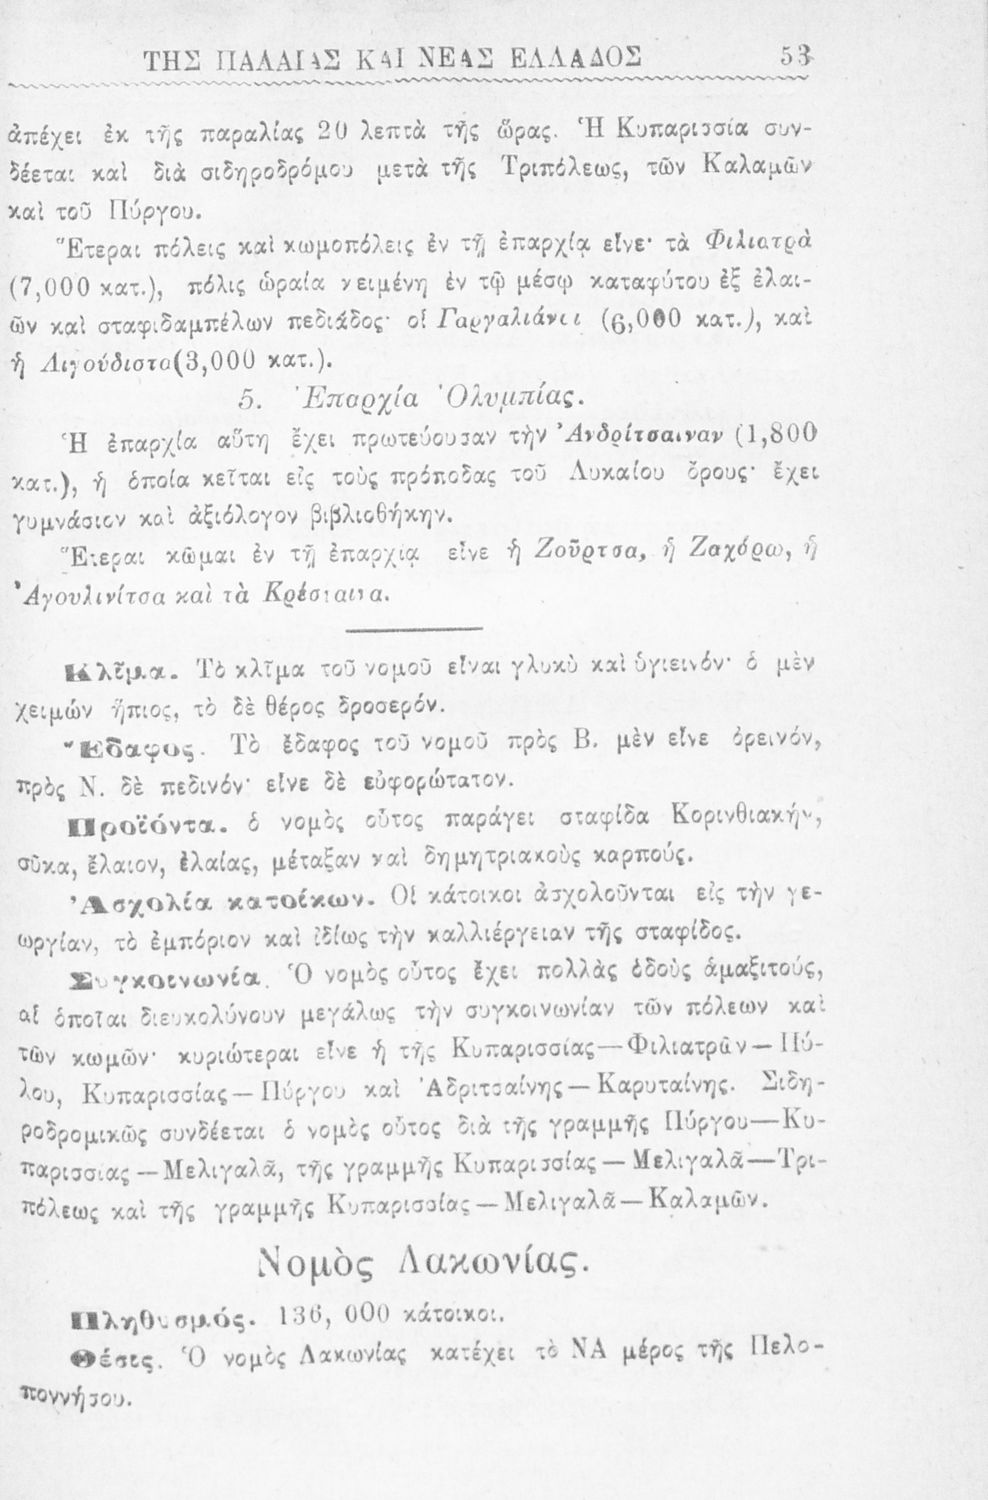 ΤΗΣ ΠΑΛΑΙΑΣ ΚΑΙ ΝΕΑΣ ΕΛΛΑΔΟΣ 53
ἀπέχει ἐκ τῆς παραλίας 20 λεπτὰ τῆς ὥρας. Ἡ Κυπαρισσία συν-
δέεται καὶ διὰ σιδηροδρόμου μετὰ τῆς Τριπόλεως, τῶν Καλαμῶν
καὶ τοῦ Πύργου.
Ἕτεραι πόλεις καὶ κωμοπόλεις ἐν τῇ ἐπαρχίᾳ εἶνε· τὰ Φιλιατρὰ
(7,000 κατ.), πόλις ὡραία κειμένη ἐν τῷ μέσῳ καταφύτου ἐξ ἐλαι-
ῶν καὶ σταφιδαμπέλων πεδιάδος· οἱ Γαργαλιάνοι (6,000 κατ.), καὶ
ἡ Λιγούδιστα(3,000 κατ.).
5. Ἐπαρχία Ὀλυμπίας.
Ἡ ἐπαρχία αὕτη ἔχει πρωτεύουσαν τὴν Ἀνδρίτσαιναν (1,800
κατ.), ἡ ὁποία κεῖται εἰς τοὺς πρόποδας τοῦ Λυκαίου ὄρους· ἔχει
γυμνάσιον καὶ ἀξιόλογον βιβλιοθήκην.
Ἕτεραι κῶμαι ἐν τῇ ἐπαρχίᾳ εἶνε ἡ Ζοῦρτσα, ἡ Ζαχόρω, ἡ
Ἀγουλινίτσα καὶ τὰ Κρέσταινα.
Κλῖμα. Τὸ κλῖμα τοῦ νομοῦ εἶναι γλυκὺ καὶ ὑγιεινόν· ὁ μὲν
χειμών ἤπιος, τὸ δὲ θέρος δροσερόν.
Ἔδαφος. Τὸ ἔδαφος τοῦ νομοῦ πρὸς Β. μὲν εἶνε ὀρεινόν,
πρὸς Ν. δὲ πεδινόν· εἶνε δὲ εὐφορώτατον.
Προϊόντα. ὁ νομὸς οὗτος παράγει σταφίδα Κορινθιακήν,
σῦκα, ἔλαιον, ἐλαίας, μέταξαν καὶ δημητριακοὺς καρπούς.
Ἀσχολία κατοίκων. Οἱ κάτοικοι ἀσχολοῦνται εἰς τὴν γε-
ωργίαν, τὸ ἐμπόριον καὶ ἰδίως τὴν καλλιέργειαν τῆς σταφίδος.
Συγκοινωνία. Ὁ νομὸς οὗτος ἔχει πολλὰς ὁδοὺς ἁμαξιτούς,
αἱ ὁποῖαι διευκολύνουν μεγάλως τὴν συγκοινωνίαν τῶν πόλεων καὶ
τῶν κωμῶν· κυριώτεραι εἶνε ἡ τῆς Κυπαρισσίας—Φιλιατρῶν—Πύ-
λου, Κυπαρισσίας—Πύργου καὶ Ἀδριτσαίνης—Καρυταίνης. Σιδη-
ροδρομικῶς συνδέεται ὁ νομὸς οὗτος διὰ τῆς γραμμῆς Πύργου—Κυ-
παρισσίας—Μελιγαλᾶ, τῆς γραμμῆς Κυπαρισσίας—Μελιγαλᾶ—Τρι-
πόλεως καὶ τῆς γραμμῆς Κυπαρισσίας—Μελιγαλᾶ—Καλαμῶν.
Νομὸς Λακωνίας.
Πληθυσμός. 136, 000 κάτοικοι.
Θέσις. Ὁ νομὸς Λακωνίας κατέχει τὸ ΝΑ μέρος τῆς Πελο-
ποννήσου.